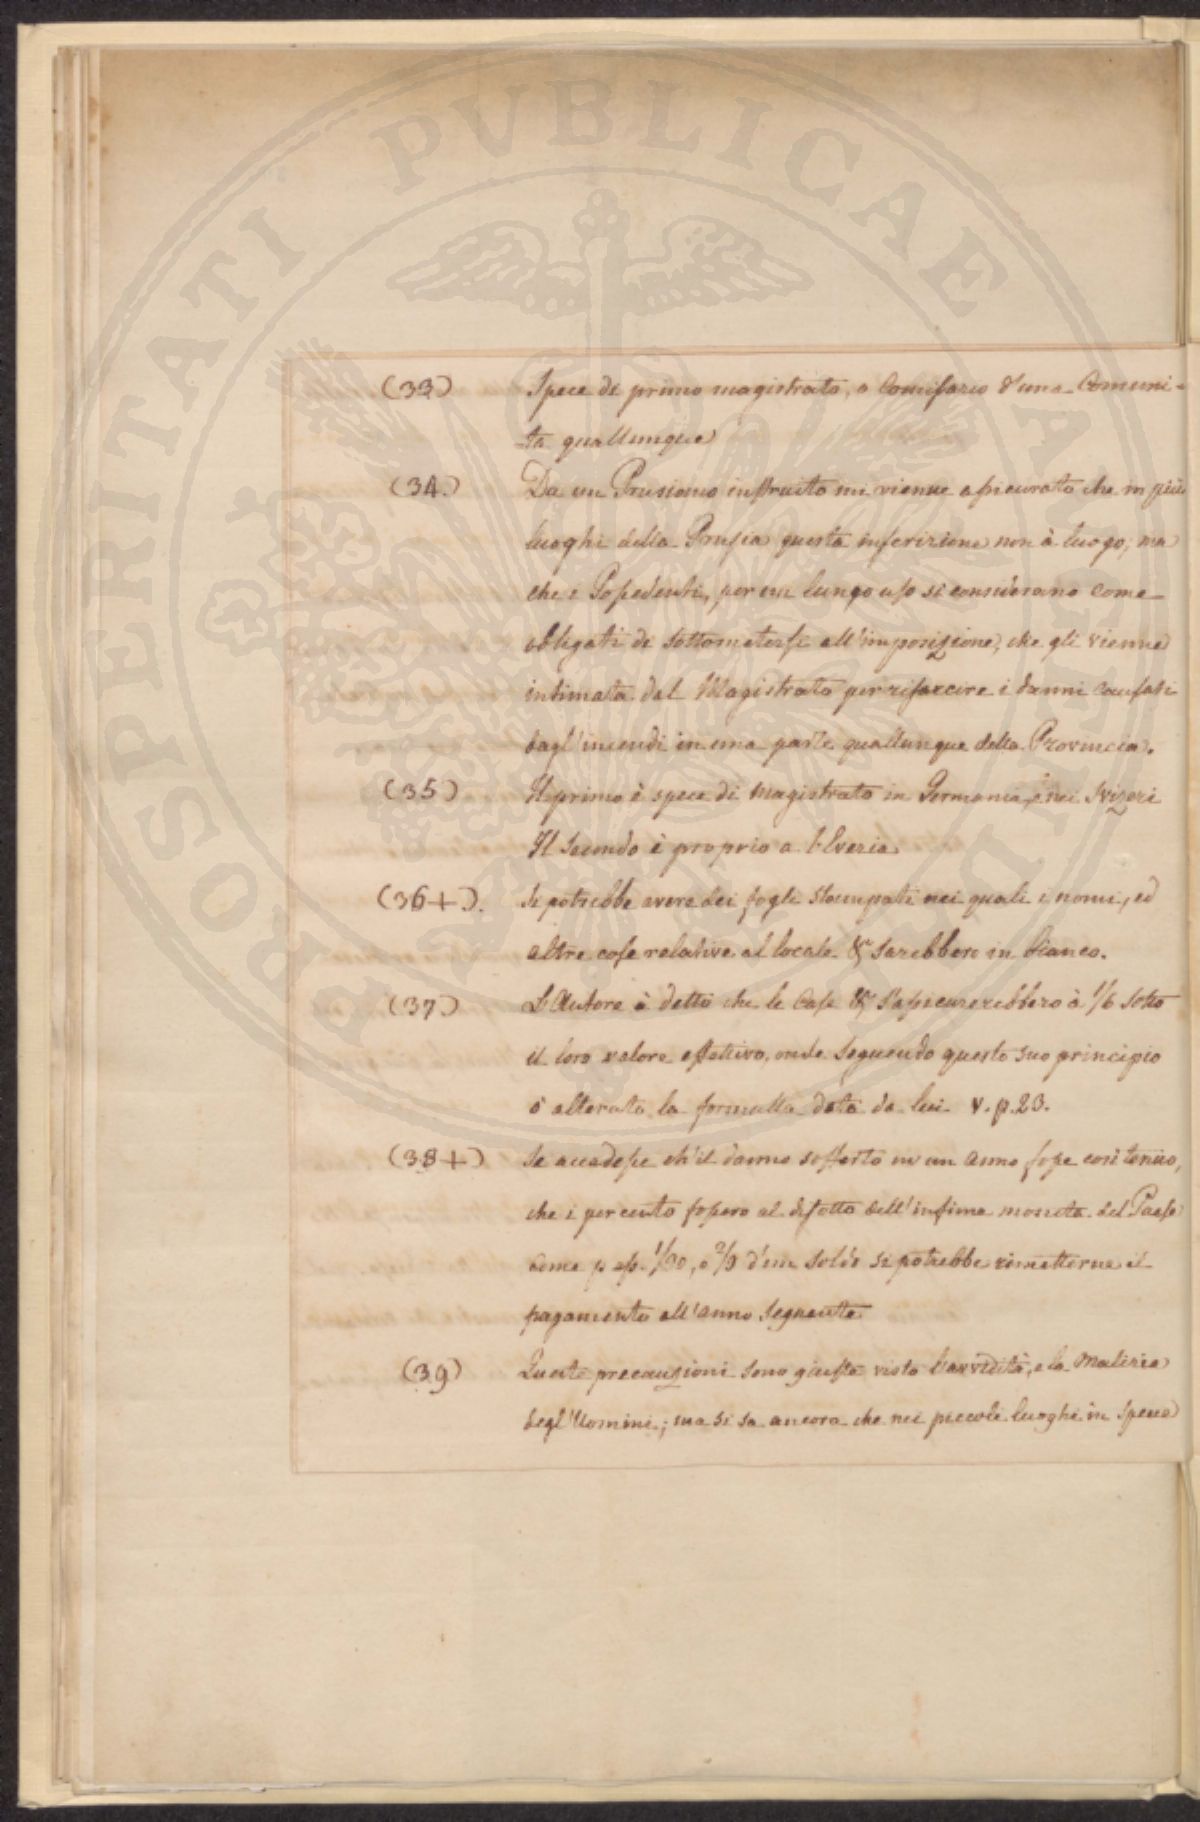 PROSPERITATI PUBLICAE AUGENDAE
(33) Spece di primo magistrato, o Comissario d'una Comuni-
ta quallunque
(34.) Da un Prussiano instruito mi vienne assicurato che in più
luoghi della Prussia questa inscrizione non à luogo; ma
che i Possedenti, per un lungo uso si considerano come
obligati di sottometersi all'imposizione, che gli vienne
intimata dal Magistrato per rifarcire i danni causati
dagl'incendi in una parte quallunque della Provincia.
(35) Il primo è spece di Magistrato in Germania, e nei Svizeri
Il secondo è proprio a l'Elvezia
(36+). Si potrebbe avere dei fogli stampati nei quali i nomi, ed
altre cose relative al locale & sarebbero in bianco.
(37) L'Autore à detto che le Case & s'assicurerebbero à 1/6 sotto
il loro valore effettivo, onde seguendo questo suo principio
ò alterata la formulla data da lui v. p. 23.
(38+) Se accadesse ch'il danno sofferto in un anno fosse così tenue,
che i per cento fossero al disotto dell'infima moneta del Paese
come p. es. 1/90, o 2/9 d'un soldo si potrebbe rimetterne il
pagamento all'anno seguente
(39) Queste precauzioni sono giuste visto l'avvidità, e la Malizia
degl'Uomini; ma si sa ancora che nei piccoli luoghi in spece